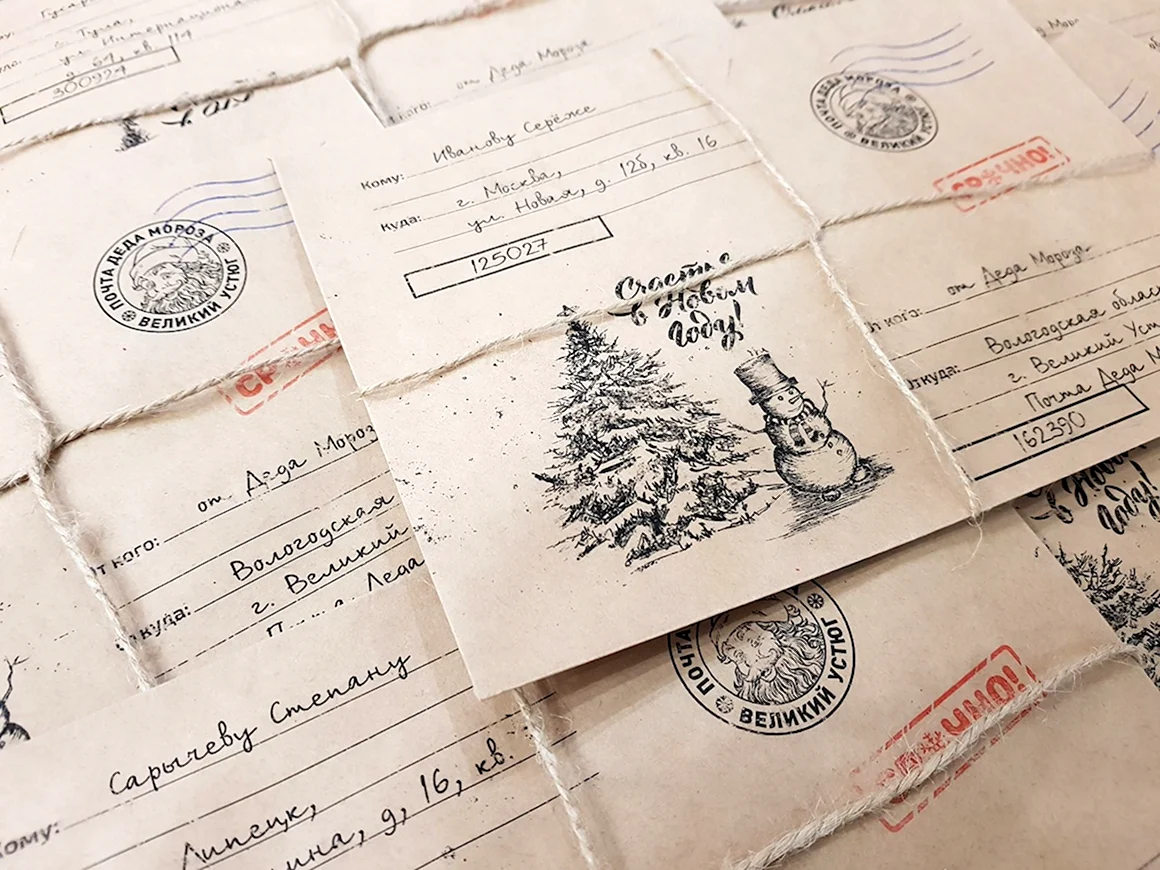 г. Тула,
ул. Интернациона
д. 64, кв. 114
300924
ПОЧТА ДЕДА МОРОЗА
ВЕЛИКИЙ УСТЮГ
СРОЧНО!
от Деда Мороза
Кому: Иванову Серёже
куда: г. Москва,
ул. Новая, д. 12б, кв. 16
125027
Счастье
в Новом
Году!
ПОЧТА ДЕДА МОРОЗА
ВЕЛИКИЙ УСТЮГ
СРОЧНО!
от кого: от Деда Мороза
откуда: Вологодская облас
г. Великий Уст
Почта Деда М
162390
от кого: от Деда Мороз
откуда: Вологодская
г. Великий
Деда
Кому: Сарычеву Степану
Липецк,
ина, д, 16, кв.
ПОЧТА
ВЕЛИКИЙ УСТЮГ
СРОЧНО!
в Новом
Году!